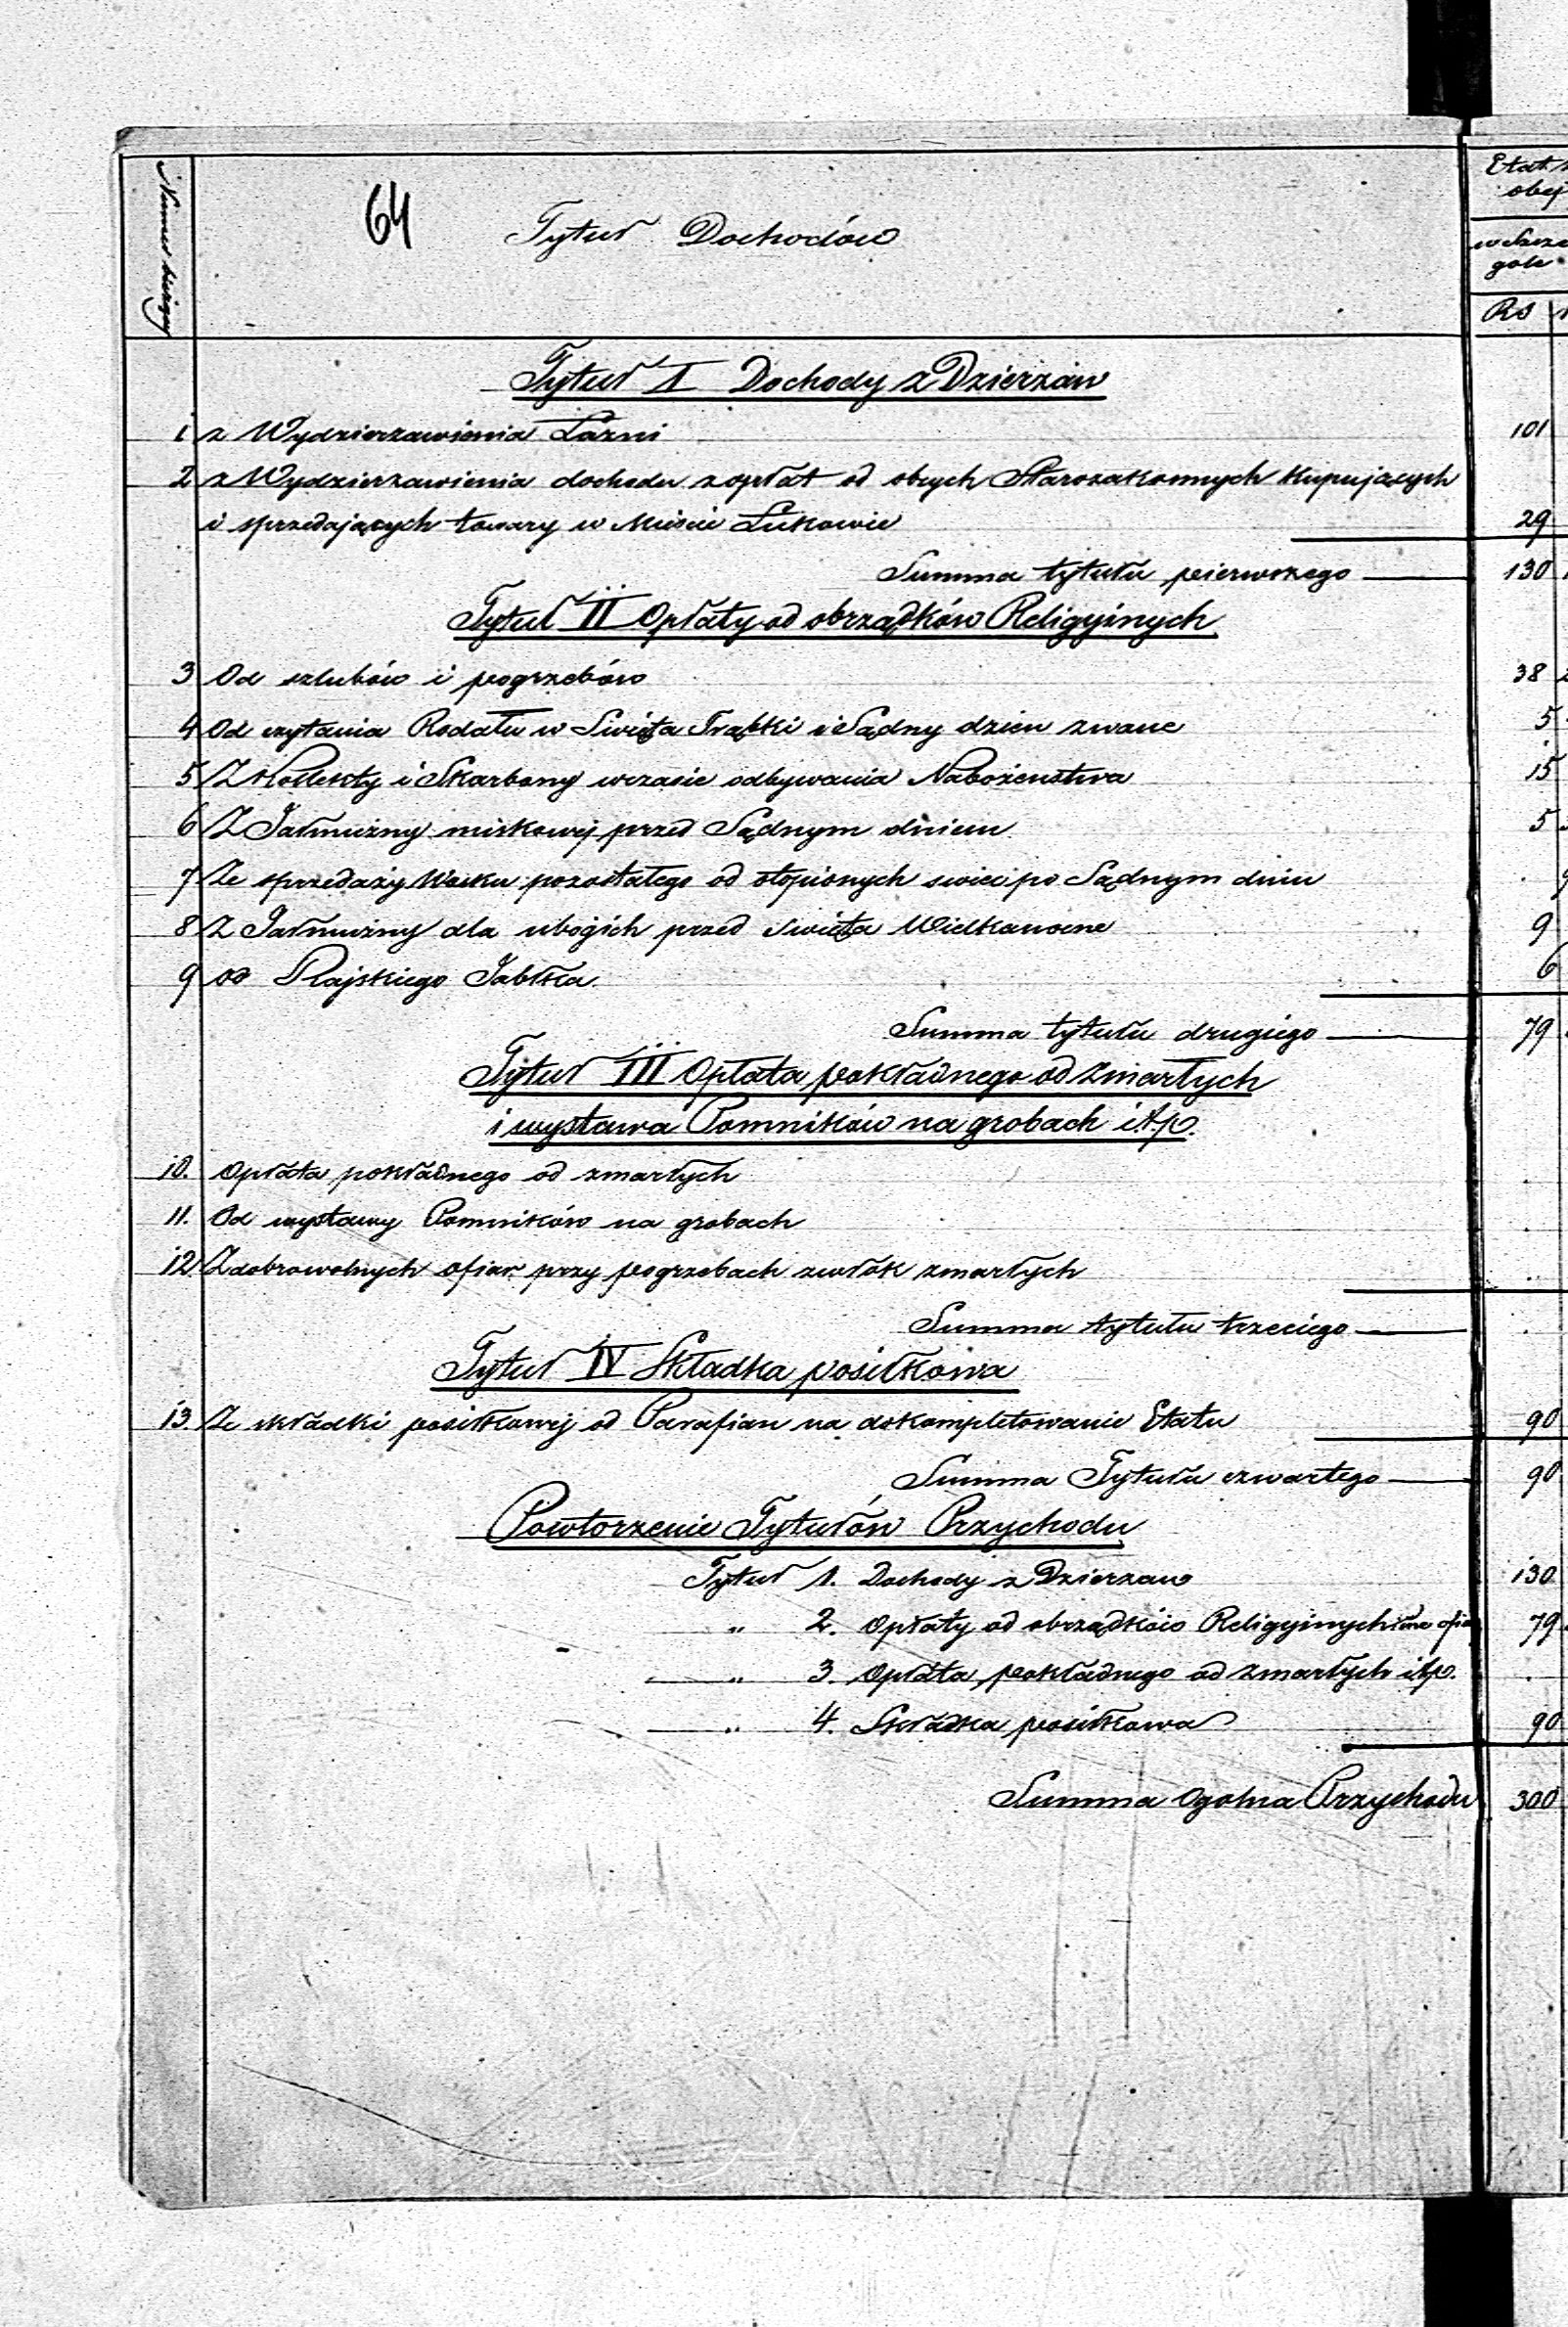 Numer bieżący
64
Tytuł Dochodów
Etat
obej
w Szcze
gole
Rs
Tytuł I Dochody z Dzierżaw
1 z Wydzierzawienia Łazni 101
2 z Wydzierzawienia dochodu z opłat od obcych Starozakonnych kupujących
i sprzedających towary w Mieście Łukowie 29
Summa tytułu pierwszego 130
Tytuł II Opłaty od obrządków Religyinych
3 Od szlubów i pogrzebów 38
4 Od czytania Rodału w Swięta Trąbki i Sądny dzien zwane 5
5 Z Kollekty i Skarbony wczasie odbywania Nabożenstwa 15
6 Z Jałmużny miskowej przed Sądnym dniem 5
7 Ze sprzedaży Wosku pozostałego od stopionych swiec po Sądnym dniu .
8 Z Jałmużny dla ubogich przed swięta Wielkanocne 9
9 od Rajskiego Jabłka. 6
Summa tytułu drugiego 79
Tytuł III Opłata pokładnego od Zmarłych
i wystawa Pomników na grobach i t.p.
10. Opłata pokładnego od zmarłych .
11. Od wystawy Pomników na grobach .
12. Z dobrowolnych ofiar przy pogrzebach zwłok zmarłych .
Summa tytułu trzeciego .
Tytuł IV Składka posiłkowa
13. Ze składki posiłkowej od Parafian na dokompletowanie Etatu 90
Summa Tytułu czwartego 90
Powtorzenie Tytułów Przychodu
Tytuł 1. Dochody z Dzierzaw 130
" 2. Opłaty od obrządków Religyinych 79
" 3. Opłata pokładnego od zmarłych i t.p. .
" 4. Składka posiłkowa 90
Summa Ogolna Przychodu 300